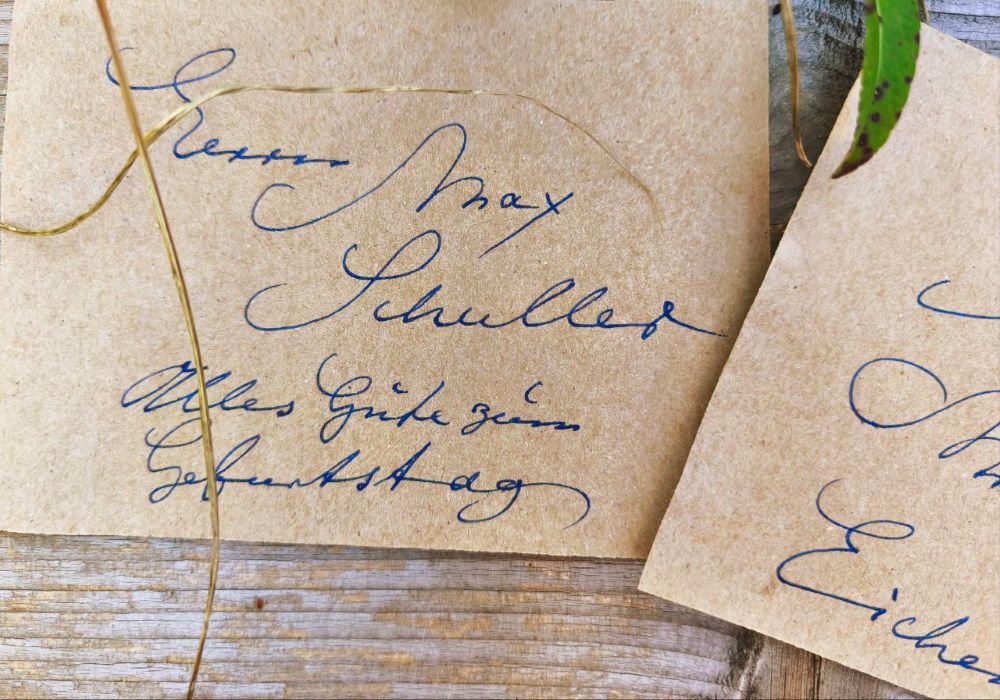 Herrn Max
Schuller
Alles Gute zum
Geburtstag